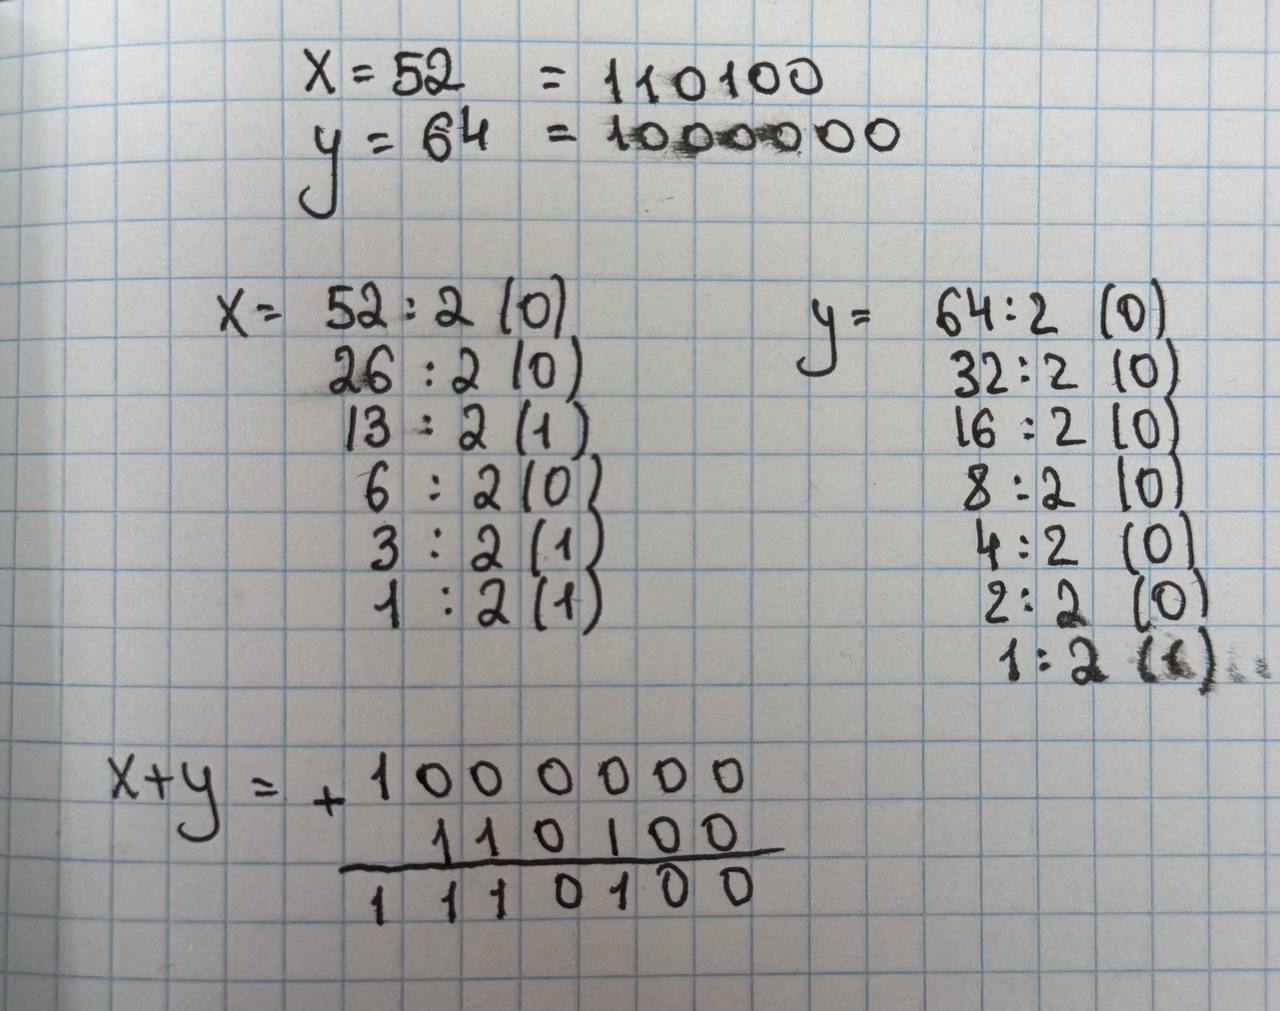 x = 52 = 110100
y = 64 = 1000000
x = 52 : 2 (0)
26 : 2 (0)
13 : 2 (1)
6 : 2 (0)
3 : 2 (1)
1 : 2 (1)
y = 64 : 2 (0)
32 : 2 (0)
16 : 2 (0)
8 : 2 (0)
4 : 2 (0)
2 : 2 (0)
1 : 2 (1)
x+y = + 1 0 0 0 0 0 0
1 1 0 1 0 0
1 1 1 0 1 0 0